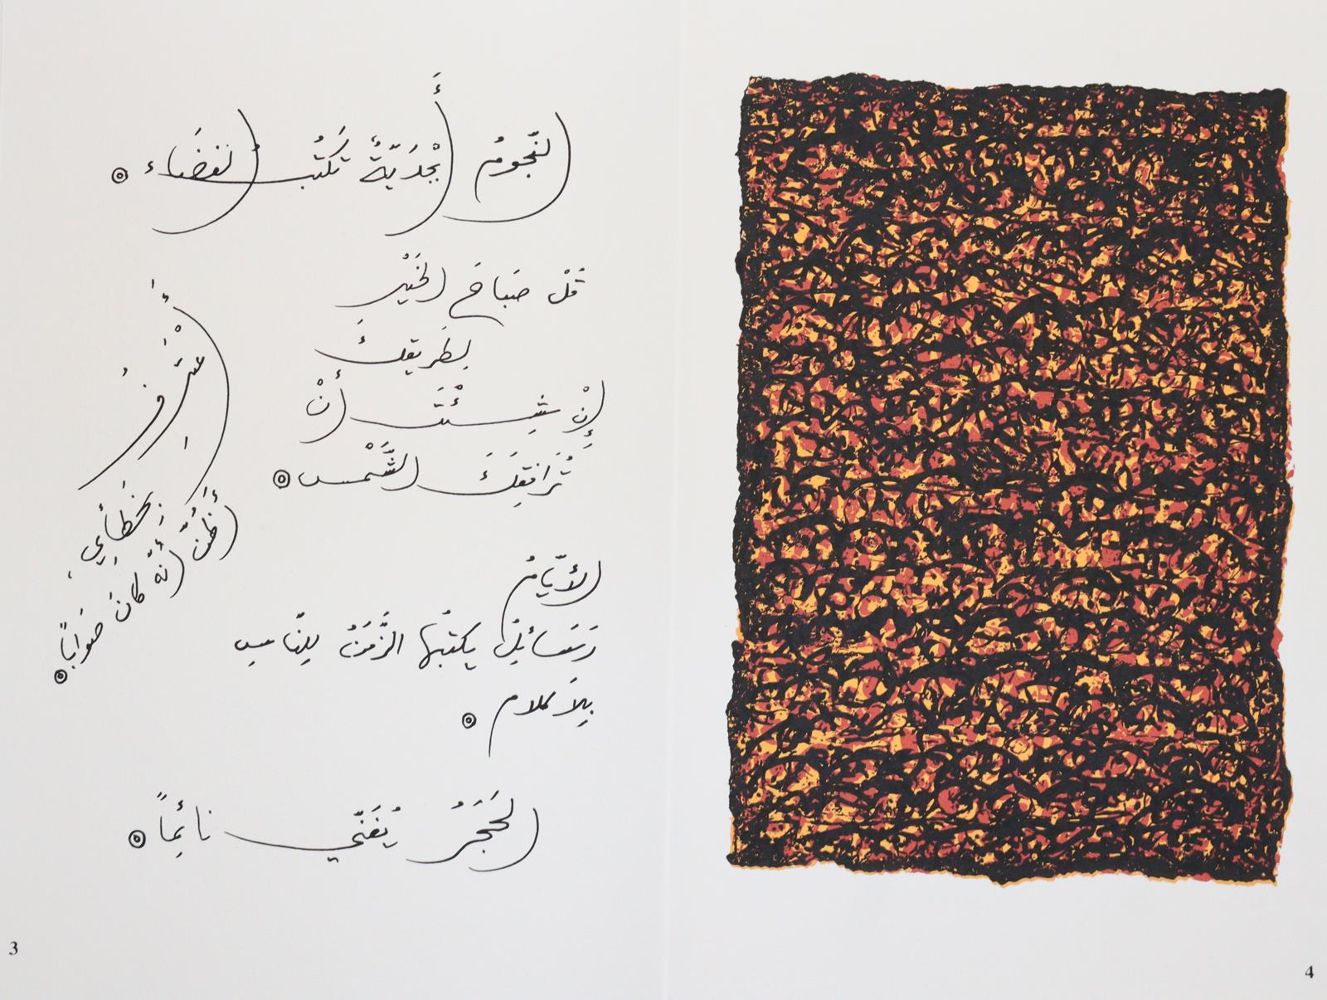 النّجومُ أَبْجَدِيّةٌ تَكْتُبُ الفضَاء
قُلْ صَبَاحَ الخَيْرِ
بطَريقتكَ
إِنْ شِئْتَ أَنْ
تُرَافِقَكَ الشَّمْس
أَعْتَرِفُ
بخَطَأي،
أَظُنُّ أَنّهُ كانَ صَوَاباً
الأيّامُ
رَسَائلُ يكتبُها الزَّمَنُ للنّاس
بِلاَ كلام
الحَجَرُ يُغَنّي نائِماً
3
4